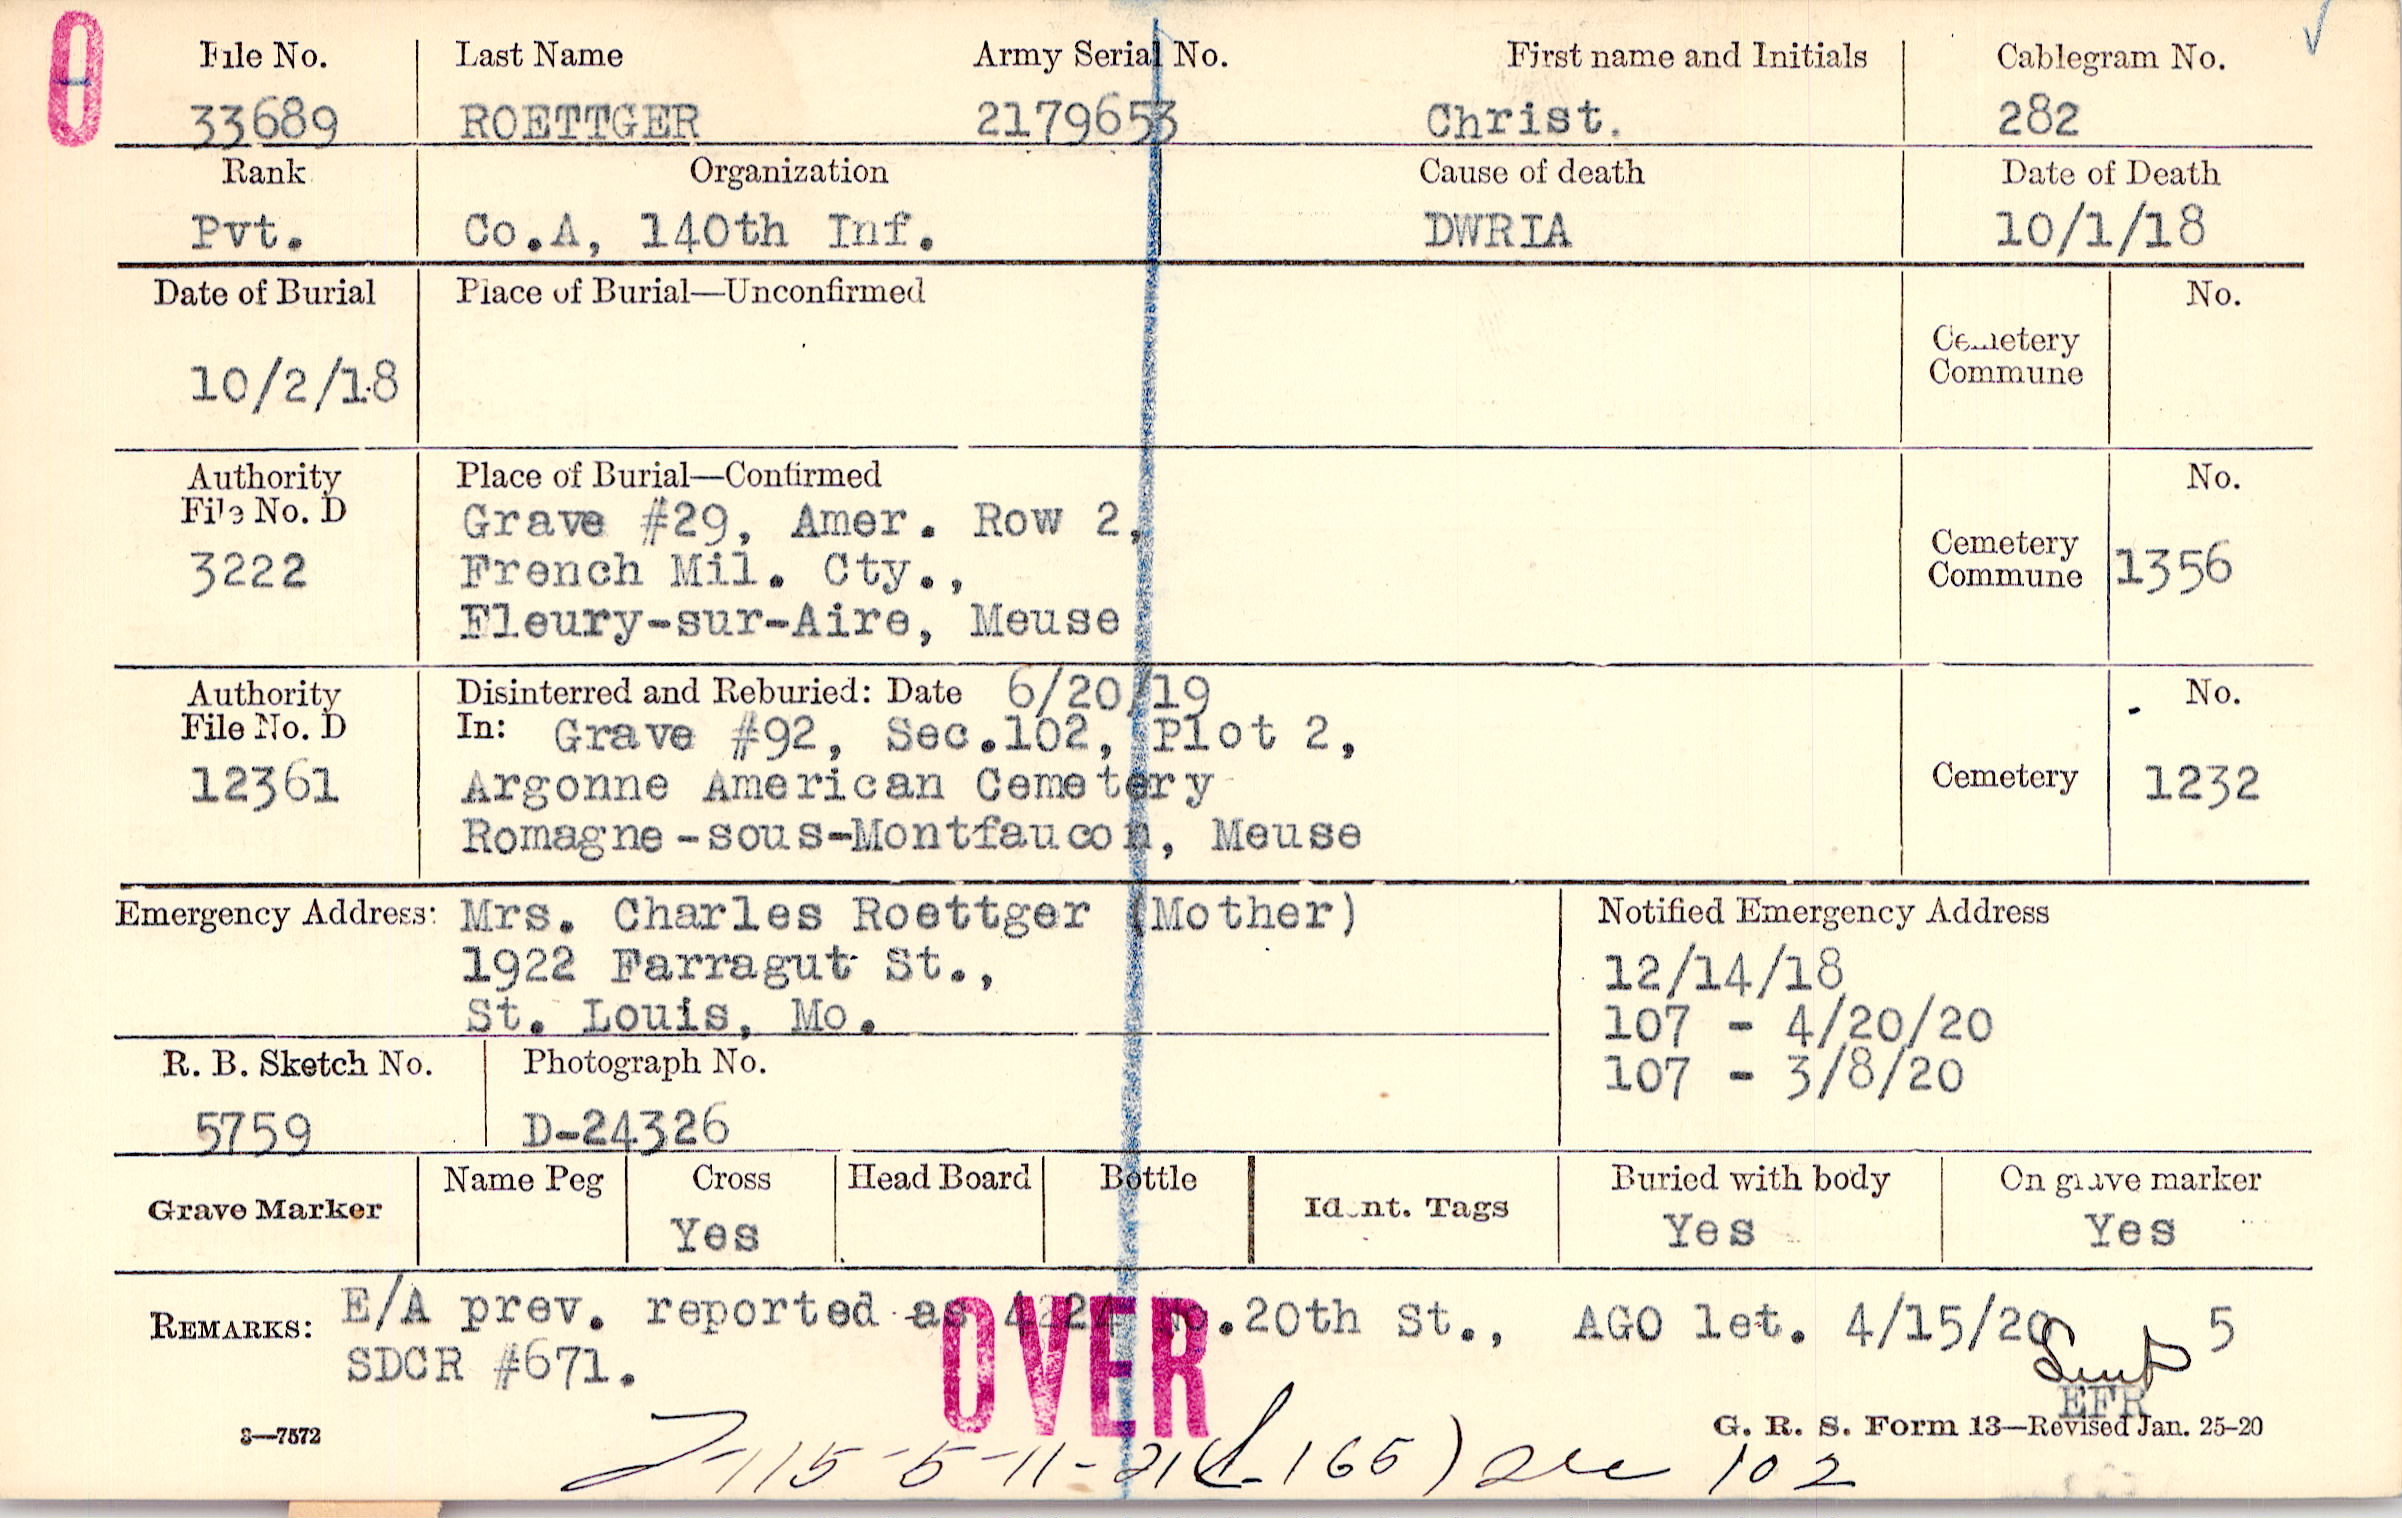 0
File No. Last Name Army Serial No. First name and Initials Cablegram No.
33689 ROETTGER 2179653 Christ. 282
Rank Organization Cause of death Date of Death
Pvt. Co.A, 140th Inf. DWRIA 10/1/18
Date of Burial Place of Burial—Unconfirmed No.
Cemetery
Commune
10/2/18
Authority Place of Burial—Confirmed No.
File No. D
3222
Grave #29, Amer. Row 2,
French Mil. Cty.,
Fleury-sur-Aire, Meuse
Cemetery
Commune 1356
Authority Disinterred and Reburied: Date 6/20/19 No.
File No. D In: Grave #92, Sec.102, Plot 2,
12361 Argonne American Cemetery Cemetery 1232
Romagne-sous-Montfaucon, Meuse
Emergency Address: Mrs. Charles Roettger (Mother)
1922 Farragut St.,
St. Louis, Mo.
Notified Emergency Address
12/14/18
107 - 4/20/20
107 - 3/8/20
R. B. Sketch No. Photograph No.
5759 D-24326
Grave Marker Name Peg Cross Head Board Bottle Ident. Tags Buried with body On grave marker
Yes Yes Yes
REMARKS: E/A prev. reported as No.20th St., AGO let. 4/15/20 5
SDCR #671.
OVER
EFR
3—7572 G. R. S. Form 13—Revised Jan. 25-20
115-5-11-21 165) 102